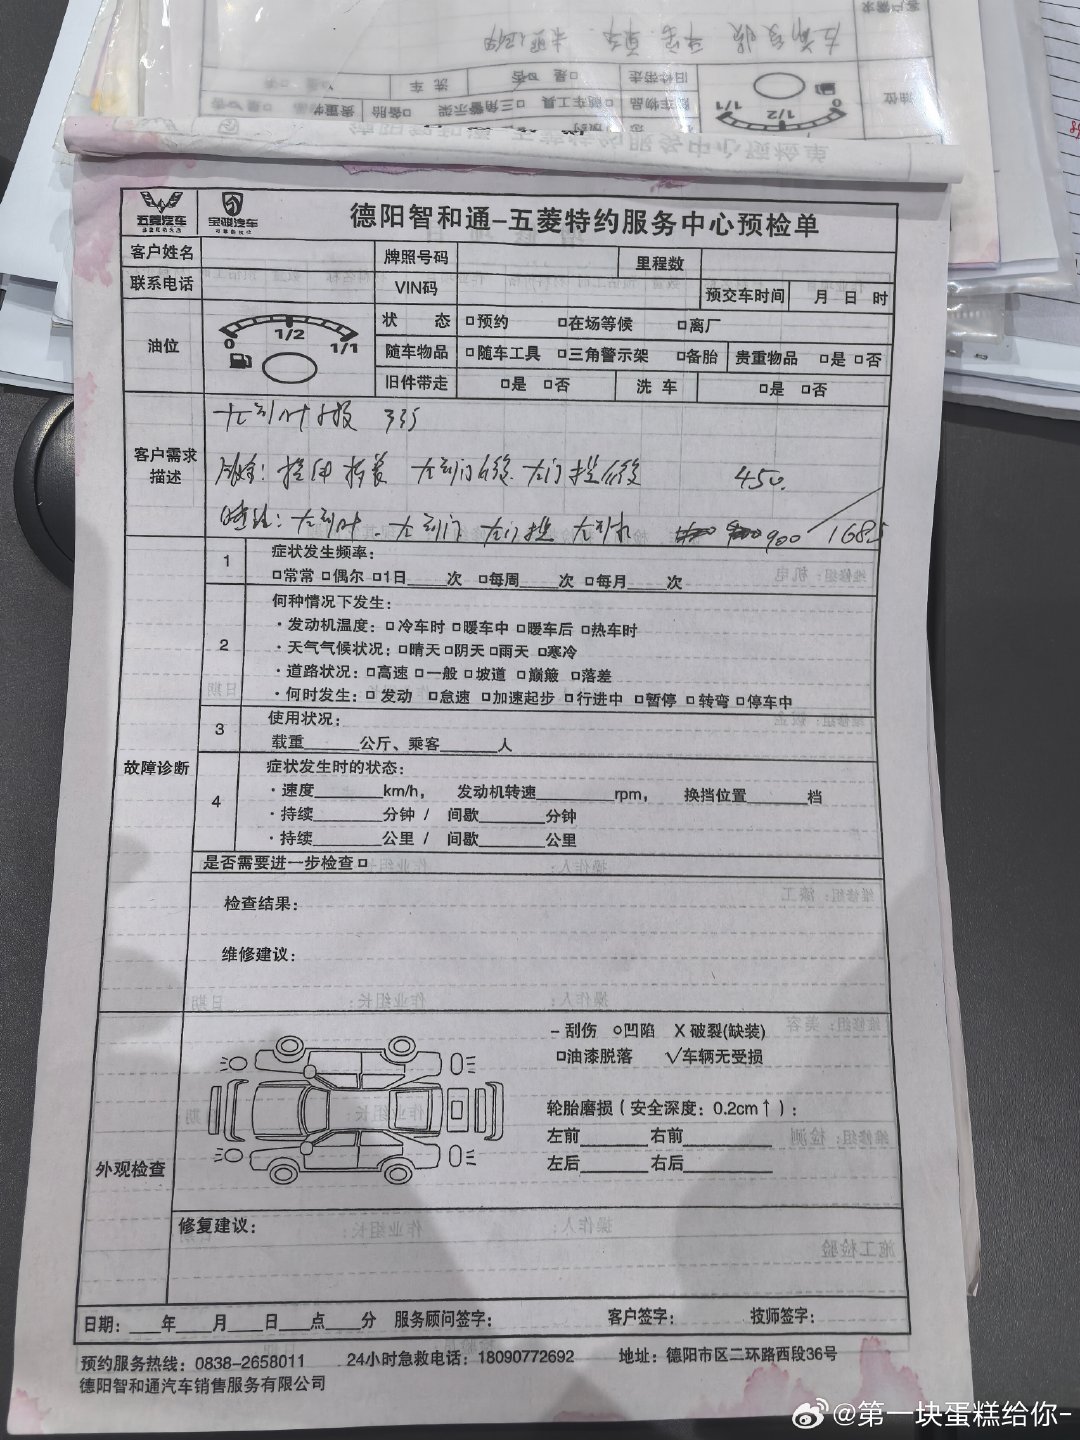 五菱汽车
宝骏汽车
德阳智和通-五菱特约服务中心预检单
客户姓名 牌照号码 里程数
联系电话 VIN码 预交车时间 月 日 时
油位 0 1/2 1/1
状 态 □预约 □在场等候 □离厂
随车物品 □随车工具 □三角警示架 □备胎 贵重物品 □是 □否
旧件带走 □是 □否 洗 车 □是 □否
客户需求描述
左前叶 335
左前门 左门 450.
左前叶 左前门 左门 900 1685
故障诊断
1 症状发生频率：
□常常 □偶尔 □1日____次 □每周____次 □每月____次
2 何种情况下发生：
·发动机温度：□冷车时 □暖车中 □暖车后 □热车时
·天气气候状况：□晴天 □阴天 □雨天 □寒冷
·道路状况：□高速 □一般 □坡道 □巅簸 □落差
·何时发生：□发动 □怠速 □加速起步 □行进中 □暂停 □转弯 □停车中
3 使用状况：
载重______公斤、乘客______人
4 症状发生时的状态：
·速度______km/h， 发动机转速______rpm， 换挡位置______档
·持续______分钟 / 间歇______分钟
·持续______公里 / 间歇______公里
是否需要进一步检查□
检查结果：
维修建议：
外观检查
－刮伤 ○凹陷 X 破裂(缺装)
□油漆脱落 √车辆无受损
轮胎磨损（安全深度：0.2cm↑）：
左前______右前______
左后______右后______
修复建议：
日期：___年___月___日___点___分 服务顾问签字： 客户签字： 技师签字：
预约服务热线：0838-2658011 24小时急救电话：18090772692 地址：德阳市区二环路西段36号
德阳智和通汽车销售服务有限公司
@第一块蛋糕给你-